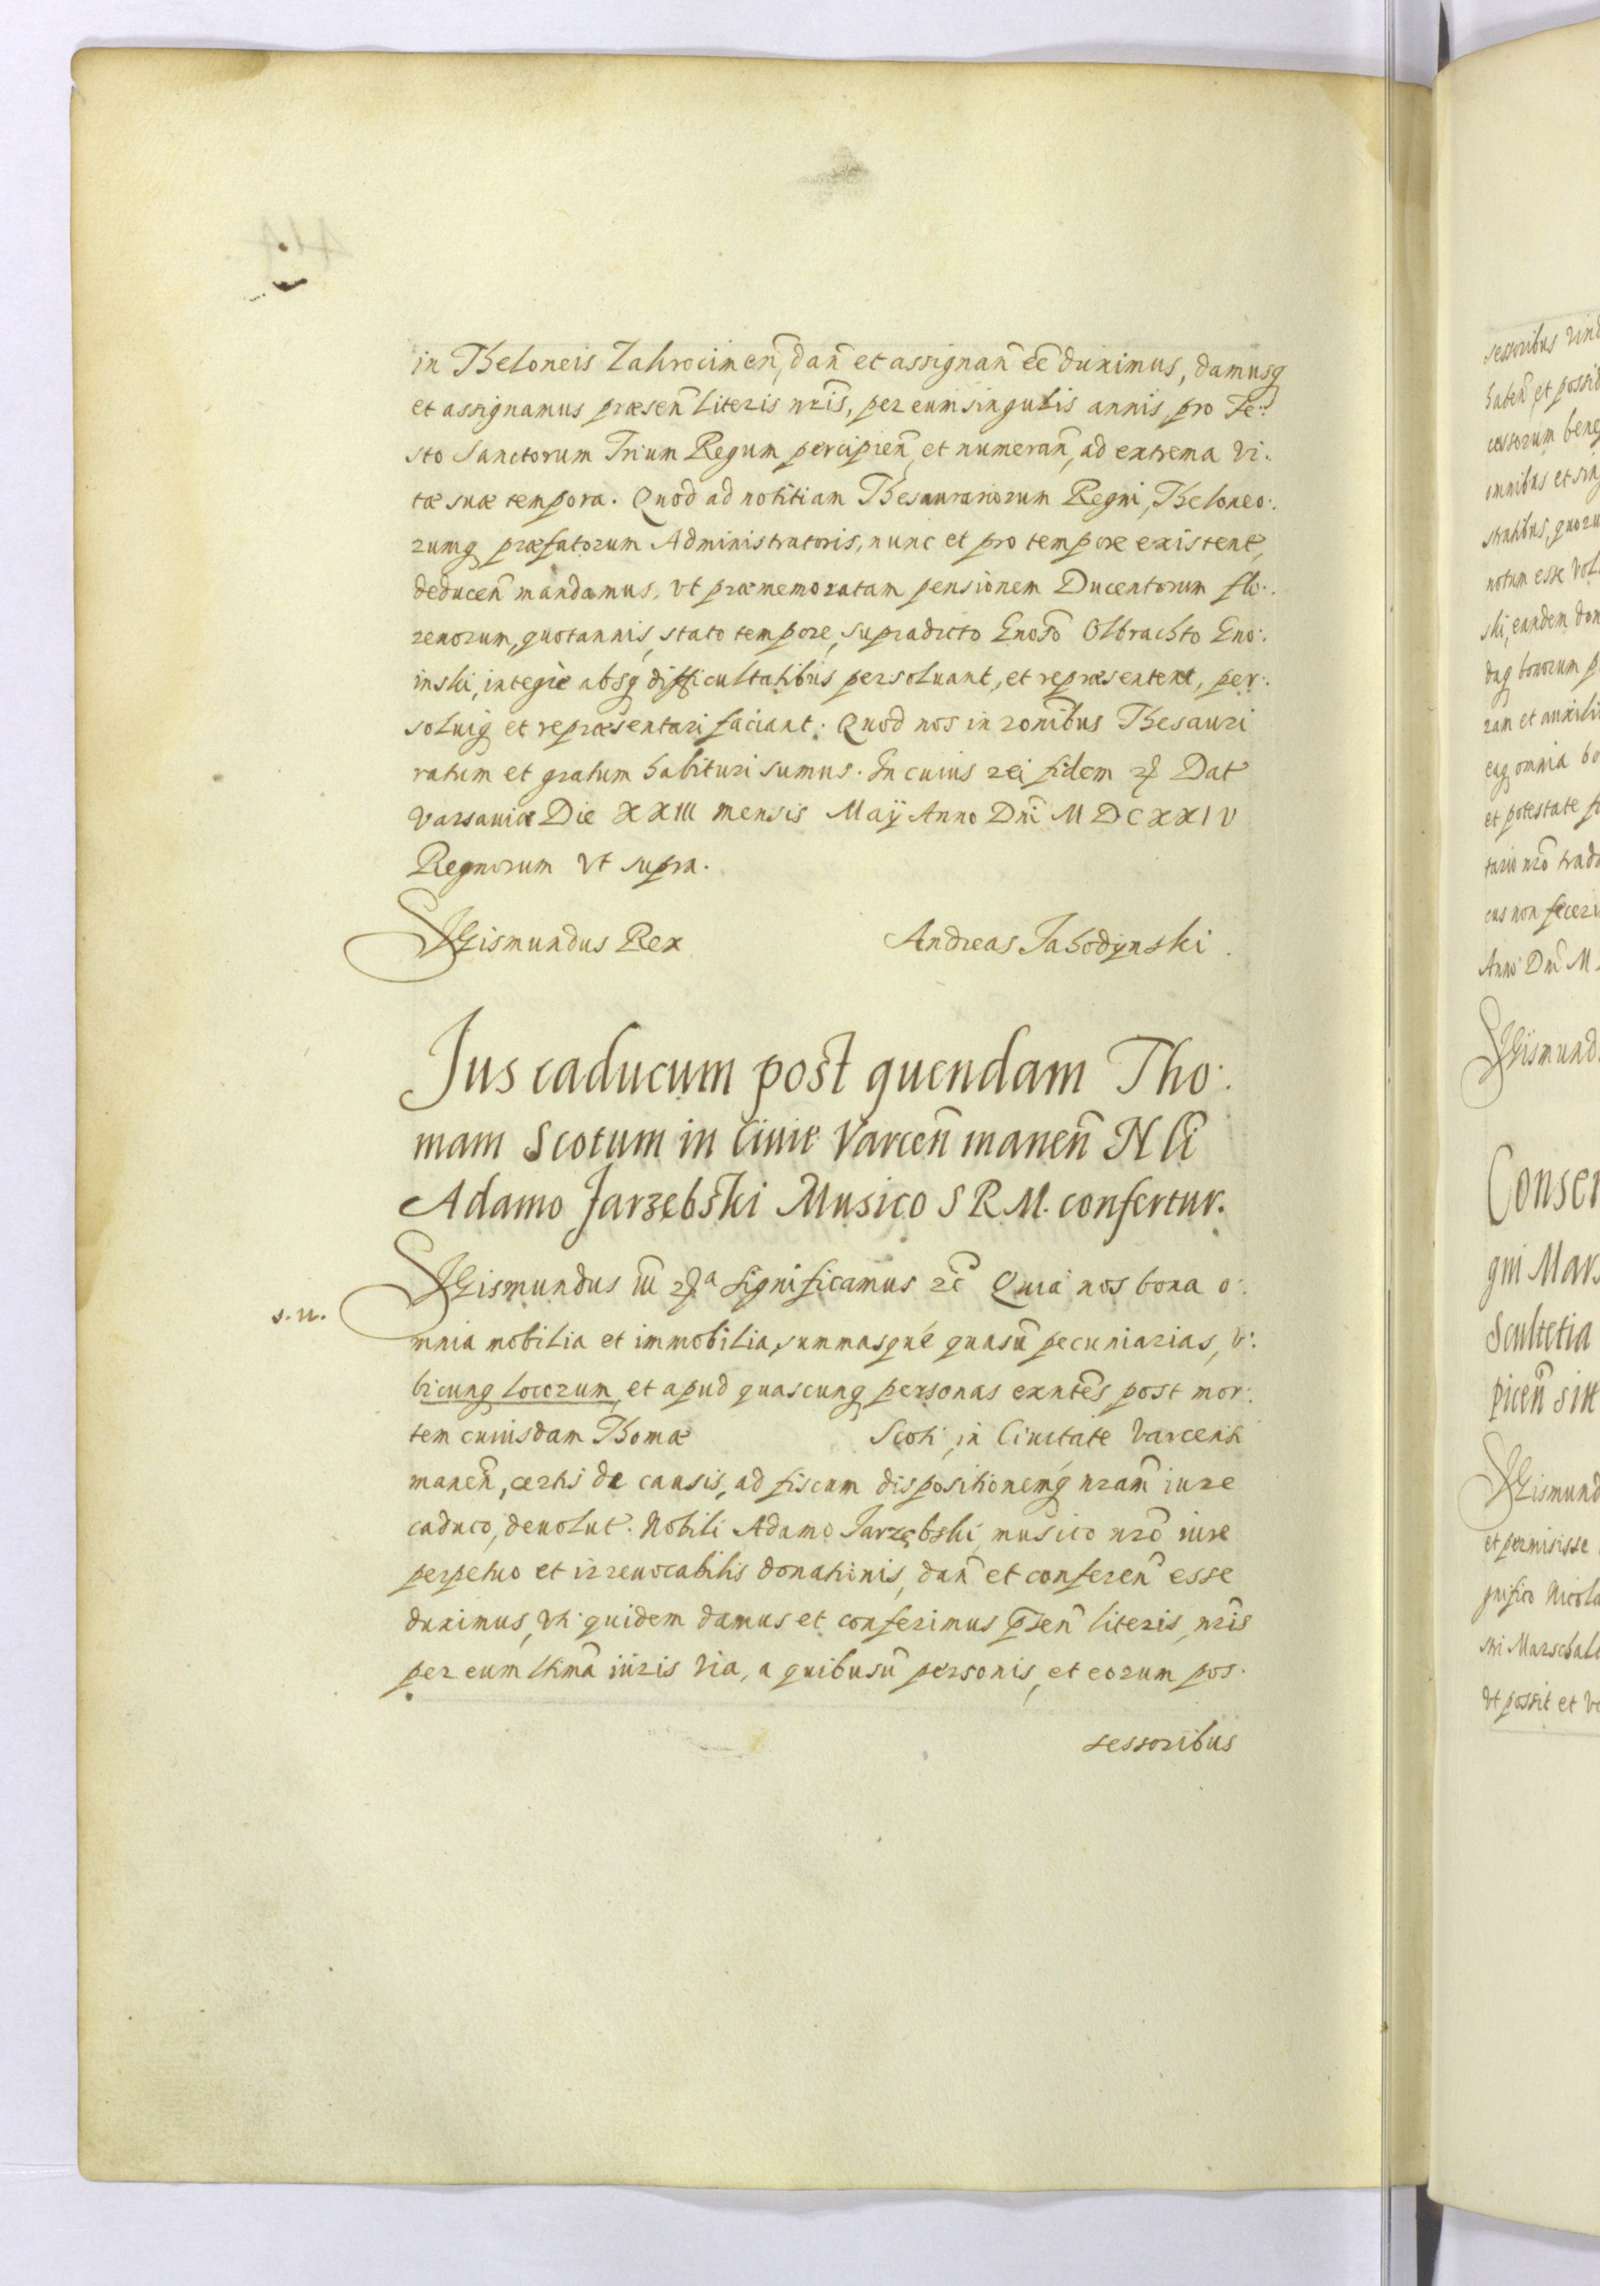 in Theloneis Zakrocimeñ, dañ et assignañ eē duximus, damusq
et assignamus præseñ literis nr̃is, per eum singulis annis pro Fe:
sto Sanctorum Trium Regum percipieñ, et numerañ, ad extrema vi:
tæ suæ tempora. Quod ad notitiam Thesaurariorum Regni, Theloneo:
rumq præfatorum Administratoris, nunc et pro tempore existent,
deduceñ mandamus, vt præmemoratam pensionem Ducentorum flo:
renorum, quotannis, stato tempore, supradicto Gnoso Olbrachto Gno:
inski, integrè absq difficultatibus persoluant, et repræsentent, per:
soluiq et repræsentari faciant. Quod nos in ronibus Thesauri
ratum et gratum habituri sumus. In cuius rei fidem &c Dat
Varsauiæ Die XXIII mensis Maÿ Anno Dni MDCXXIV
Regnorum vt supra.
Sigismundus Rex Andreas Jahodÿnski.
Jus caducum post quendam Tho:
mam Scotum in Ciuit Varceñ maneñ Nli
Adamo Jarzębski Musico S R M. confertur.
s. n.
Sigismundus III &a significamus &c Quia nos bona o:
mnia mobilia et immobilia, summasque quasũ pecuniarias, v:
bicunq locorum, et apud quascunq personas exñtes post mor:
tem cuiusdam Thomæ Scoti, in Ciuitate Varcensi
maneñ, certis de causis, ad fiscum dispositionemq nram iure
caduco, deuolut. Nobili Adamo Jarzębski, musico nro iure
perpetuo et irreuocabilis donationis, dañ et confereñ esse
duximus, vti quidem damus et conferimus p̃señ literis, nris
per eum ltima iuris via, a quibusũ personis, et eorum pos:
sessoribus
sessoribus
omnibus et
notum esse
Sigismund
Conser
Scultetia
Sigismund
et permisisse